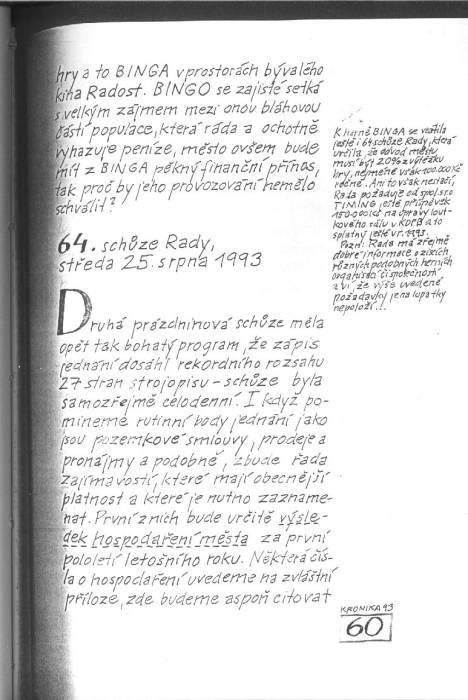 hry a to BINGA v prostorách bývalého
kina Radost. BINGO se zajisté setká
s velkým zájmem mezi onou bláhovou
částí populace, která ráda a ochotně
vyhazuje peníze, město ovšem bude
mít z BINGA pěkný finanční přínos,
tak proč by jeho provozování nemělo
schválit?
64. schůze Rady,
středa 25. srpna 1993
Druhá prázdninová schůze měla
opět tak bohatý program, že zápis
jednání dosáhl rekordního rozsahu
27 stran strojopisu - schůze byla
samozřejmě celodenní. I když po-
mineme rutinní body jednání jako
jsou pozemkové smlouvy, prodeje a
pronájmy a podobně, zbude řada
zajímavostí, které mají obecnější
platnost a které je nutno zazname-
nat. První z nich bude určitě výsle-
dek hospodaření města za první
pololetí letošního roku. Některá čís-
la o hospodaření uvedeme na zvláštní
příloze, zde budeme aspoň citovat
K herně BINGA se vrátila
ještě i 64. schůze Rady, která
určila, že odvod městu
musí být 20% z výtěžku
hry, nejméně však 100.000 Kč
ročně. Ani to však nestačí,
Rada požaduje od spol. s r.o.
TIMING ještě příspěvek
150.000 Kč na úpravy lout-
kového sálu v KDFB a to
splatný ještě v r. 1993.
Pozn: Rada má zřejmě
dobré informace o ziscích
různých podobných herních
organizací či společností
a ví, že výše uvedené
požadavky je na lopatky
nepoloží...
KRONIKA 93
60